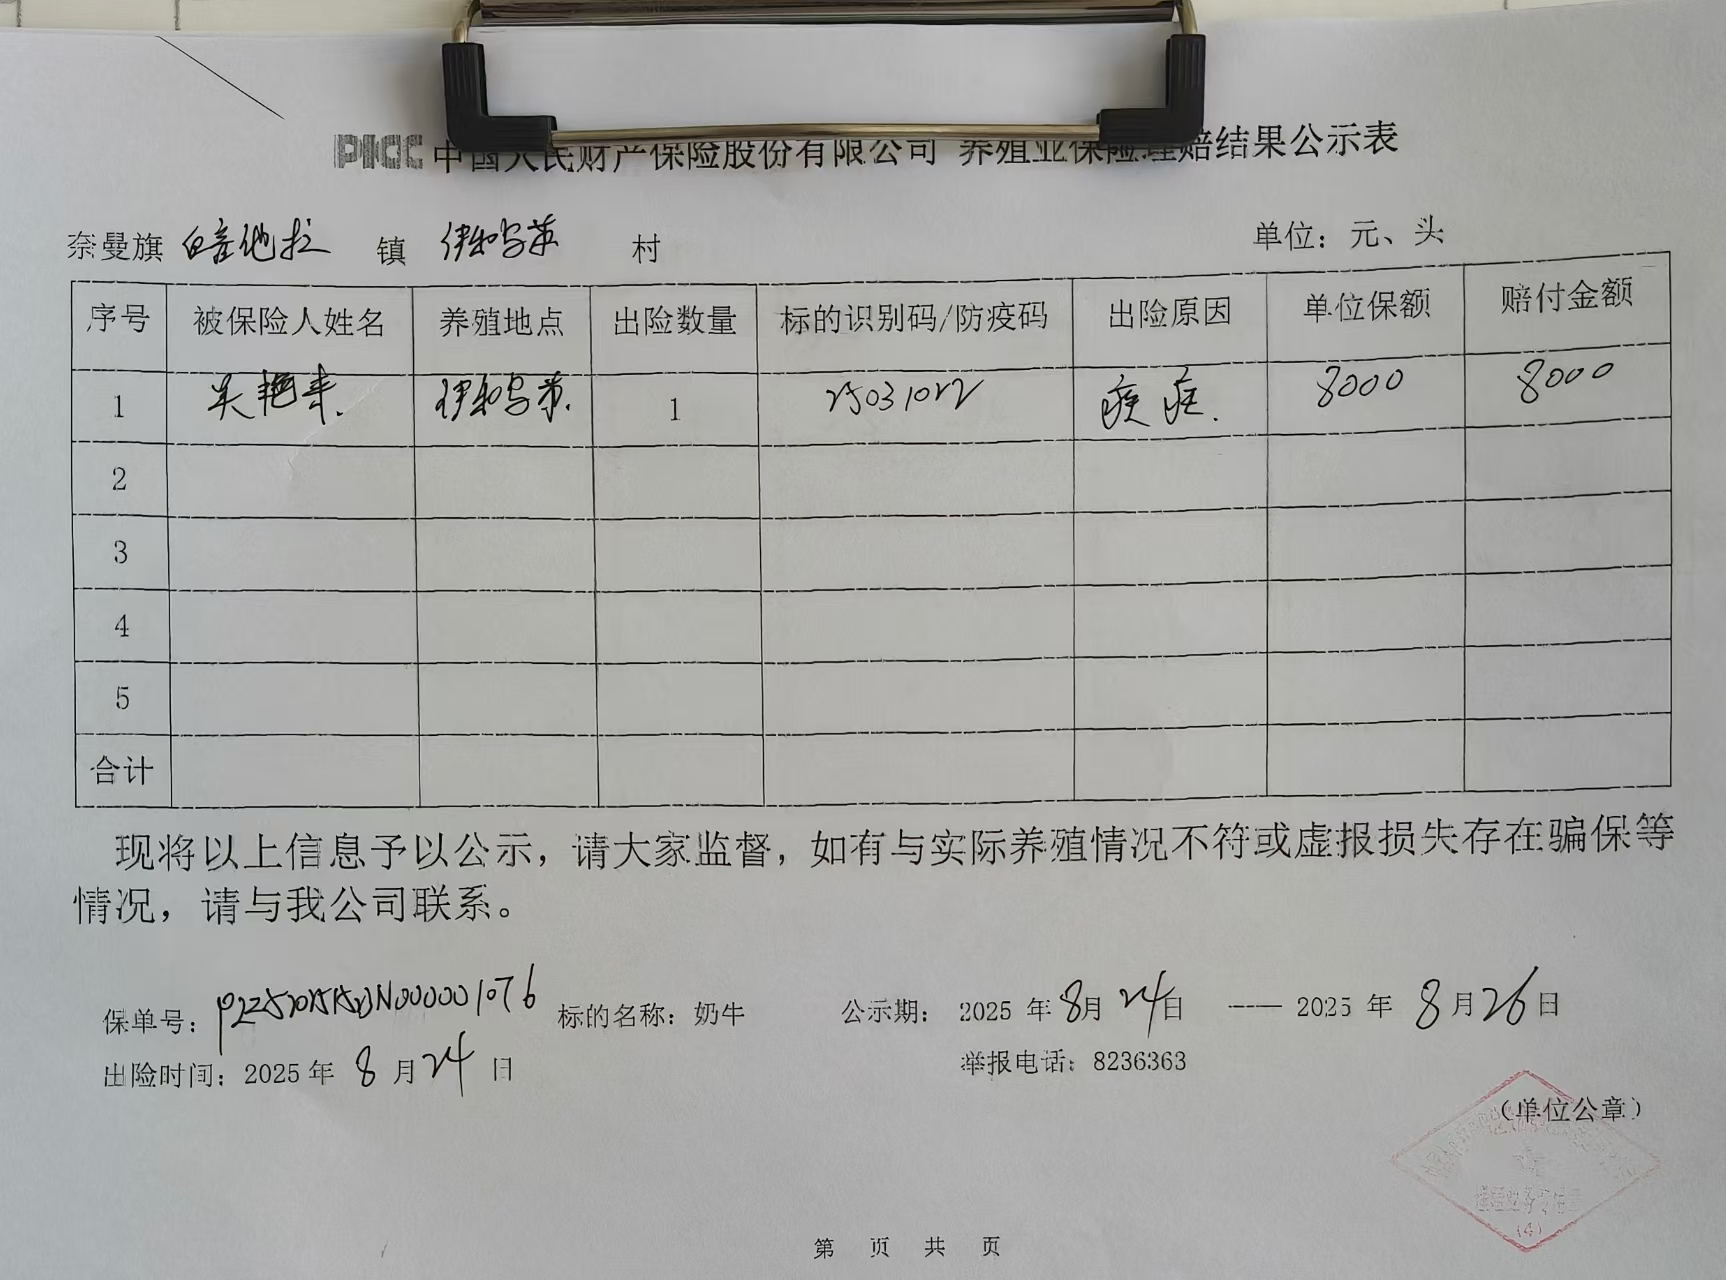 PICC 中国人民财产保险股份有限公司 养殖业保险理赔结果公示表
奈曼旗 白音他拉 镇 伊和乌苏 村 单位：元、头
序号 被保险人姓名 养殖地点 出险数量 标的识别码/防疫码 出险原因 单位保额 赔付金额
1 吴艳 伊和乌苏. 1 25031022 疾症. 8000 8000
2
3
4
5
合计
现将以上信息予以公示，请大家监督，如有与实际养殖情况不符或虚报损失存在骗保等
情况，请与我公司联系。
保单号： 标的名称：奶牛 公示期： 2025 年 8月 24日 —— 2025 年 8月26日
出险时间：2025年 8月24 日 举报电话：8236363
（单位公章）
(4)
第 页 共 页